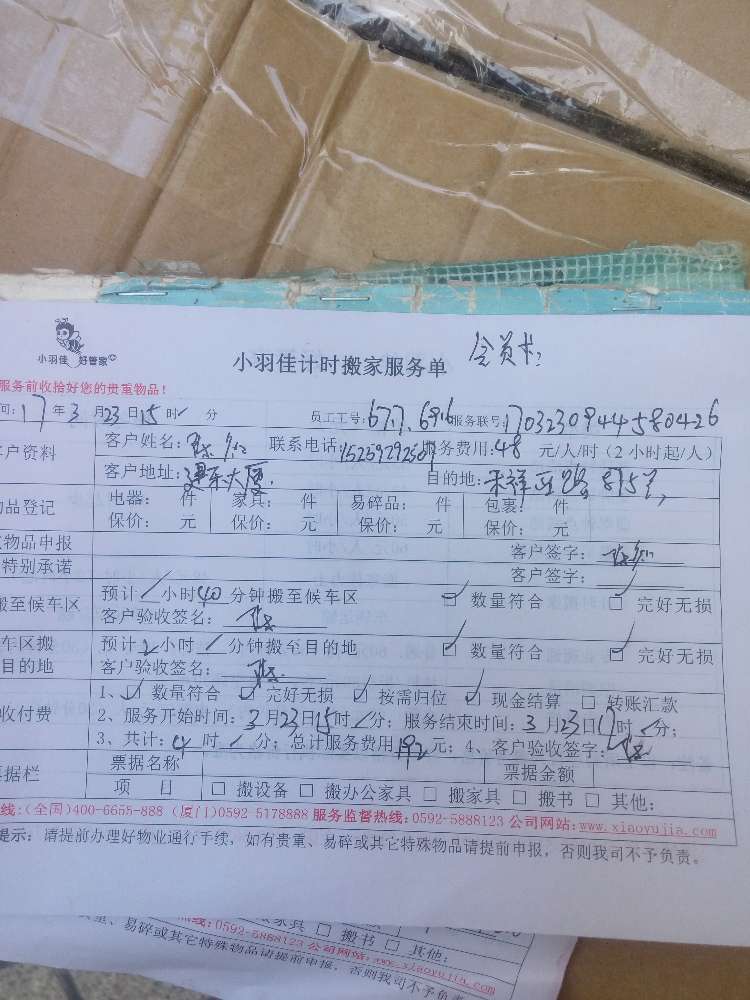 小羽佳 好管家©
小羽佳计时搬家服务单 会员卡:
服务前收拾好您的贵重物品!
间:17年3月23日15时/分 员工工号:677.696 服务联号:1703230944580426
户资料 客户姓名: 联系电话: 服务费用:48 元/人/时(2小时起/人)
客户地址:建东大厦. 目的地:
品登记 电器: 件 家具: 件 易碎品: 件 包裹: 件
保价: 元 保价: 元 保价: 元 保价: 元
物品申报 客户签字:
特别承诺 客户签字:
搬至候车区 预计/小时40分钟搬至候车区 数量符合 完好无损
客户验收签名:
车区搬 预计2小时/分钟搬至目的地 数量符合 完好无损
目的地 客户验收签名:
1、 数量符合 完好无损 按需归位 现金结算 转账汇款
收付费 2、服务开始时间:3月23日15时/分; 服务结束时间:3月23日17时/分;
3、共计:4时/分; 总计服务费用192元; 4、客户验收签字:
票据名称 票据金额
据栏 项 目 搬设备 搬办公家具 搬家具 搬书 其他:
线:(全国)400-6655-888 (厦门)0592-5178888 服务监督热线:0592-5888123 公司网站:www.xiaoyujia.com
提示: 请提前办理好物业通行手续, 如有贵重、易碎或其它特殊物品请提前申报, 否则我司不予负责。
家具 搬书 其他:
线:0592-5888123 公司网站:www.xiaoyujia.com
重、易碎或其它特殊物品请提前申报, 否则我司不予负责